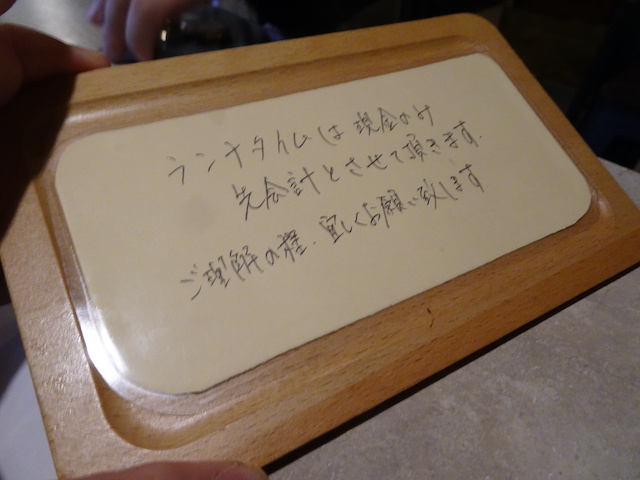 ランチタイムは現金のみ
先会計とさせて頂きます.
ご理解の程、宜しくお願い致します